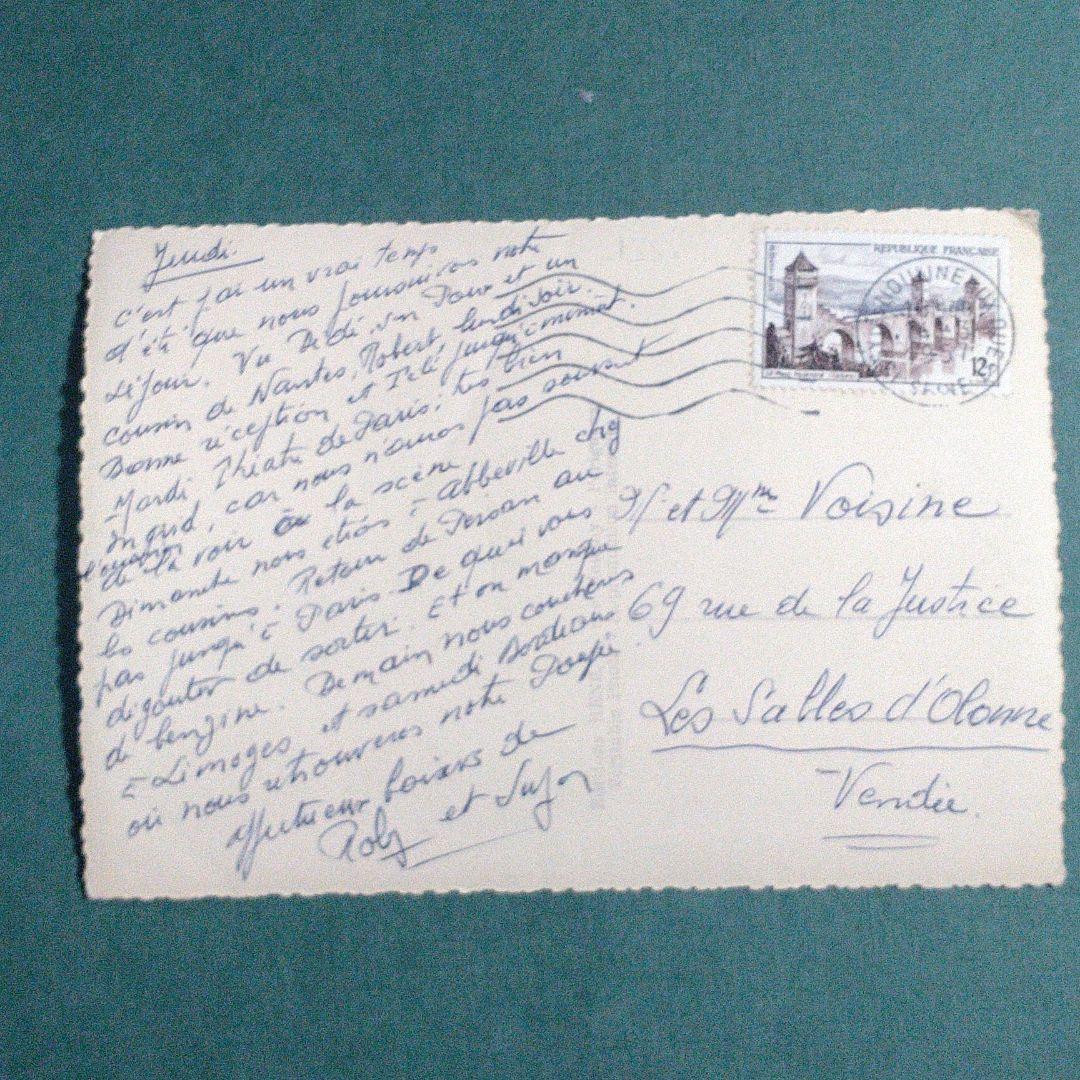 Jeudi.
c'est par un vrai temps
d'été que nous poursuivons notre
séjour. Vu Dédé, Paur et un
cousin de Nantes, Robert, lundi soir.
Bonne réception et Télé jusqu'à minuit.
Mardi Théâtre de Paris: très bien
Ingrid, car nous n'aurons pas souvent
l'occasion
de la voir à la scène
Dimanche nous étions à Abbeville chez
les cousins. Retour de Persan au
pas jusqu'à Paris. De quoi vous
dégouter de sortir. Et on manque
de benzine. Demain nous couchons
à Limoges et samedi Bordeaux
où nous retrouverons notre
affectueux baisers de
Roby et Suzon
REPUBLIQUE FRANÇAISE
12F
M et Mme Voisine
69 rue de la Justice
Les Sables d'Olonne
Vendée.